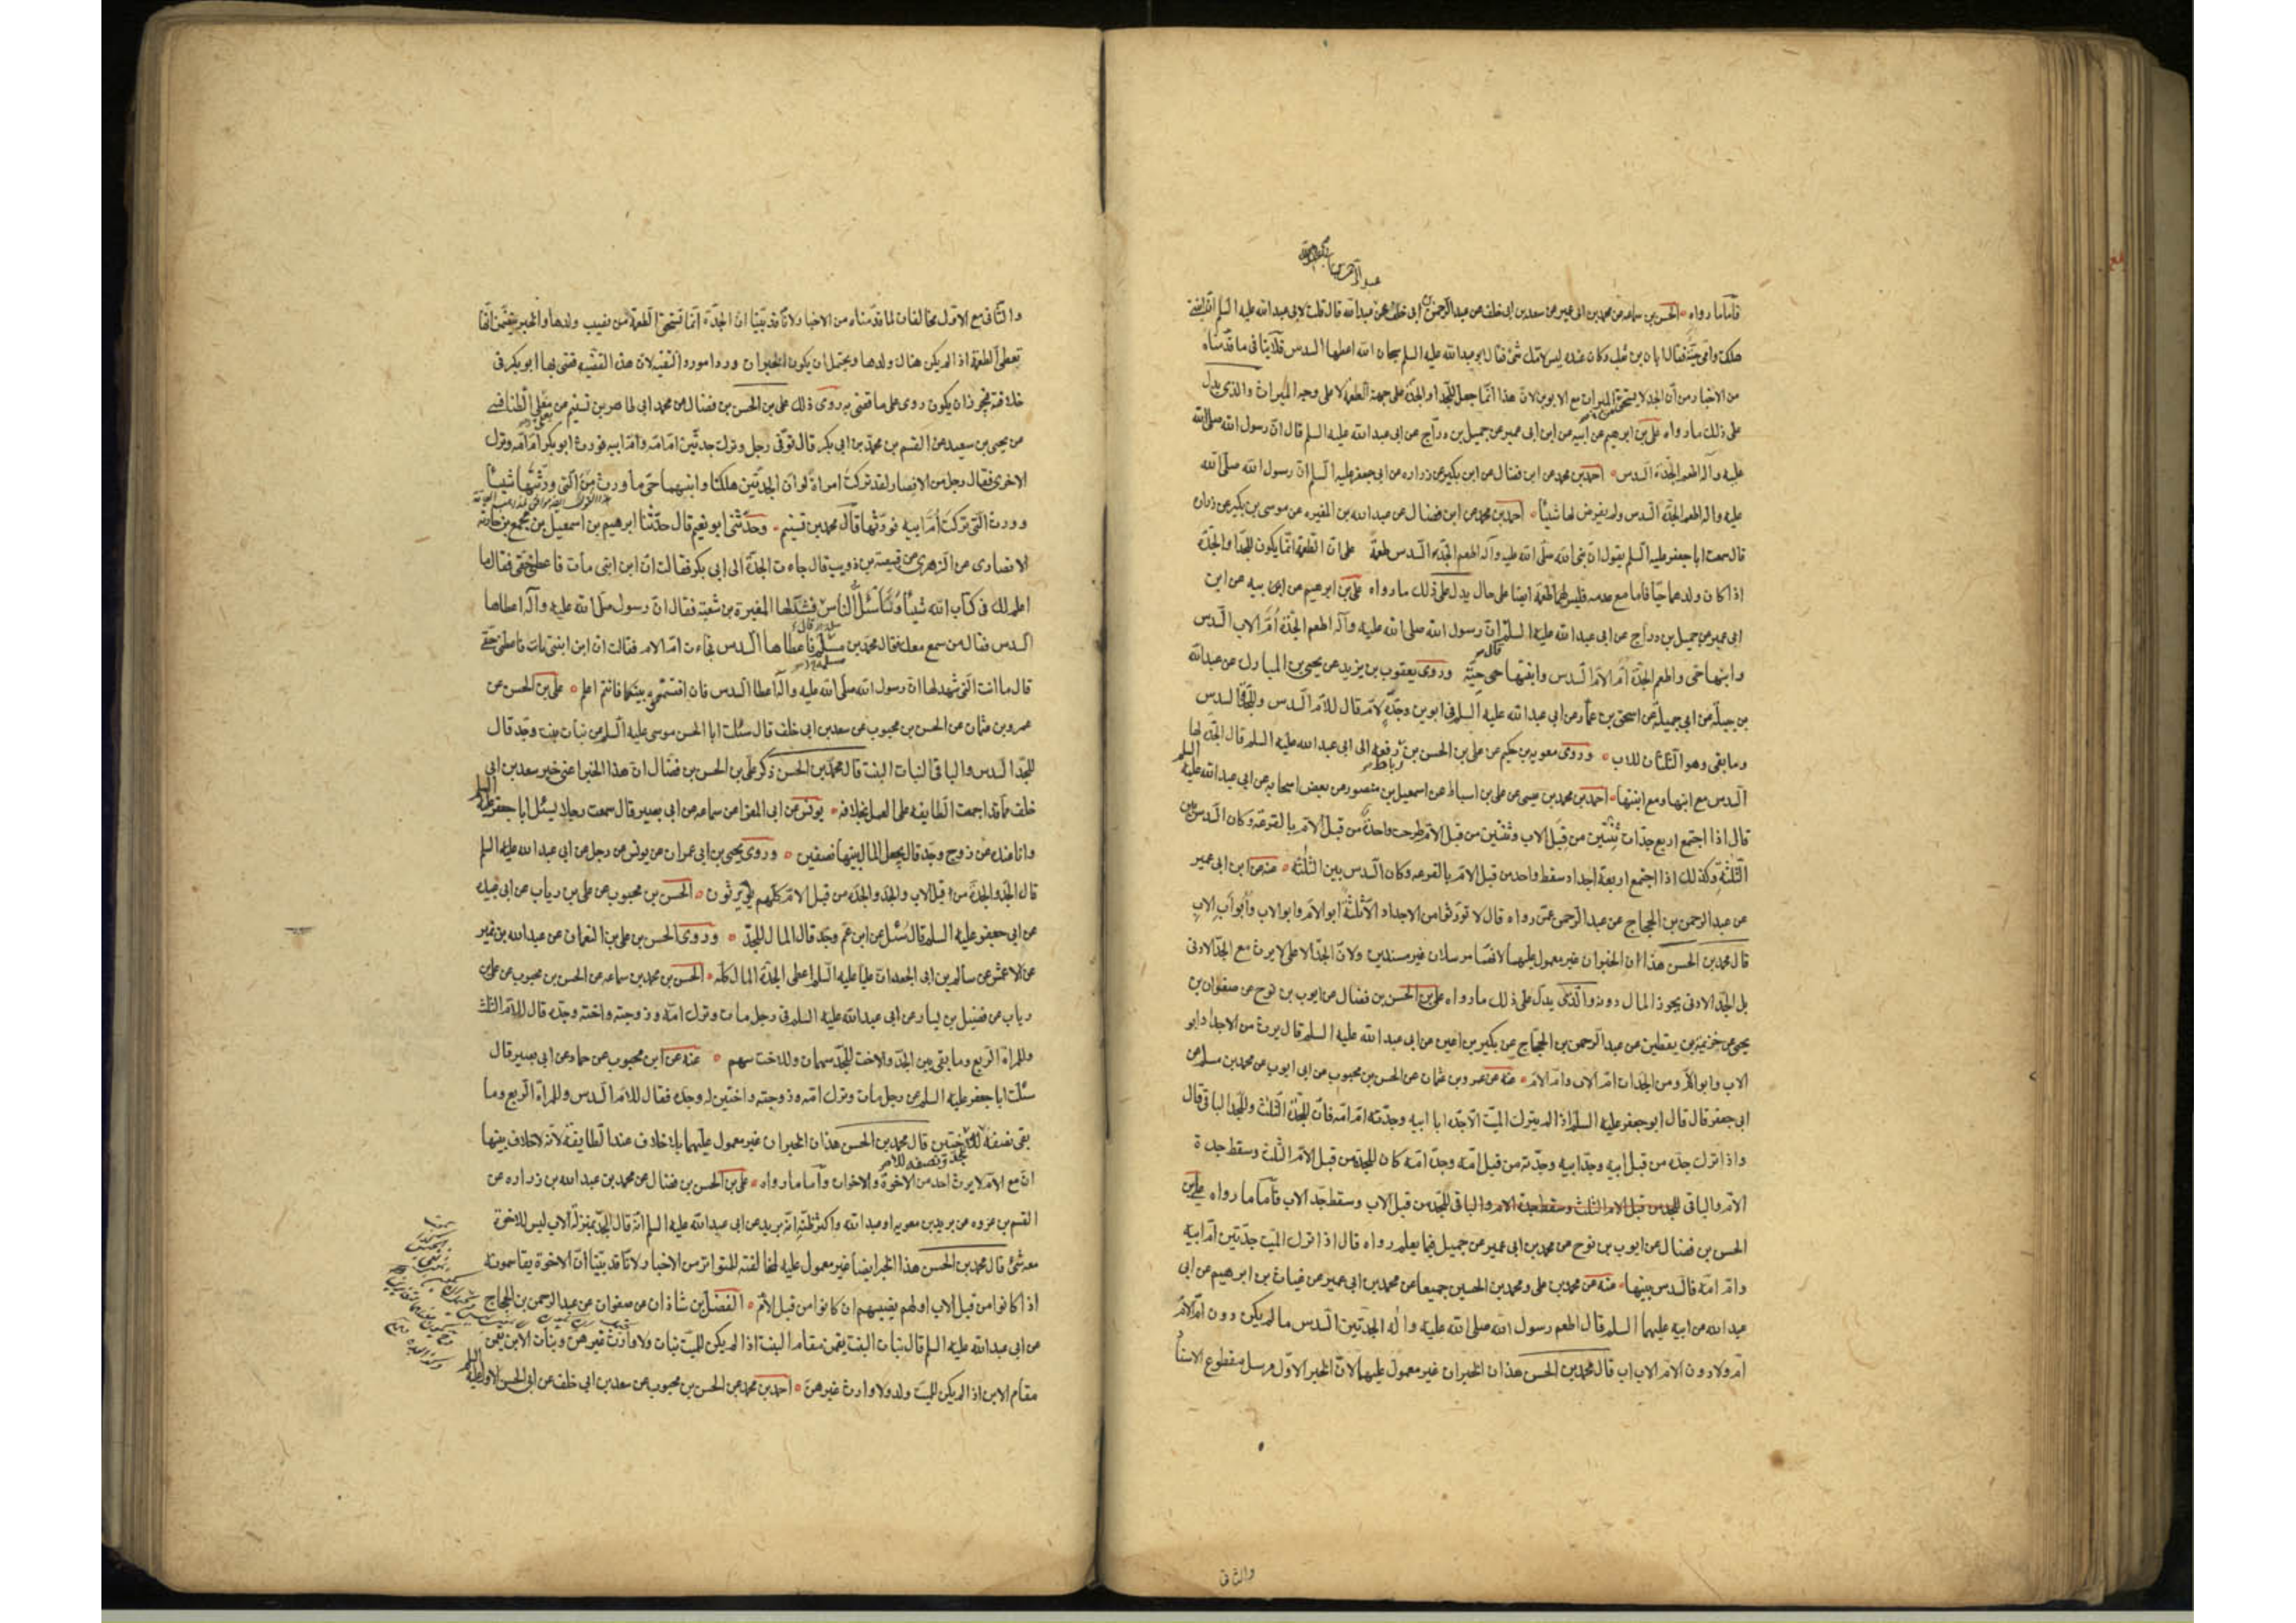 فأما ما رواه الحسن بن سماعه عن محمد بن ابى عمير عن سعد بن ابى خلف عن عبد الرحمن بن ابى عبد الله قال قلت لابى عبد الله عليه السلم ان ابنتى
هلكت وامى حية فقال ابان بن تغلب وكان عنده ليس لامك شئ فقال ابو عبد الله عليه السلم سبحان الله اعطها السدس فلا ينافى ما قدمناه
من الاخبار من أن الجد لا يستحق الميراث مع الابوين لان هذا انما جعل للجد او الجدة على جهة الطعمة لا على وجه الميراث والذى يدل
على ذلك ما رواه على بن ابرهيم عن أبيه عن ابن ابى عمير عن جميل بن دراج عن ابى عبد الله عليه السلم قال ان رسول الله صلى الله
عليه وآله اطعم الجدة السدس احمد بن محمد عن ابن فضال عن ابن بكير عن زراره عن ابى جعفر عليه السلم ان رسول الله صلى الله
عليه واله اطعم الجدة السدس ولم يفرض لها شيئا احمد بن محمد عن ابن فضال عن عبد الله بن المغيره عن موسى بن بكير عن زراره
قال سمعت ابا جعفر عليه السلم يقول ان نبى الله صلى الله عليه وآله اطعم الجدة السدس طعمة على ان الطعمة انما يكون للجد او الجدة
اذا كان ولدهما حيا فاما مع عدمه فليس لهما طعمة ايضا على حال يدل على ذلك ما رواه على بن ابرهيم عن ابيه عن ابن
ابى عمير عن جميل بن دراج عن ابى عبد الله عليه السلم ان رسول الله صلى الله عليه وآله اطعم الجدة أم الاب السدس
وابنها حى واطعم الجدة أم الام السدس وابنتها حية وروى يعقوب بن يزيد عن يحيى بن المبارك عن عبد الله
بن جبلة عن ابى جميلة عن اسحق بن عمار عن ابى عبد الله عليه السلم فى ابوين وجدة لام قال للام السدس وللجدة السدس
وما بقى وهو الثلثان للاب وروى معويه بن حكيم عن على بن الحسن بن رباط رفعه الى ابى عبد الله عليه السلم قال الجدة لها
السدس مع ابنها ومع ابنتها احمد بن محمد بن عيسى عن على بن اسباط عن اسمعيل بن منصور عن بعض اصحابه عن ابى عبد الله عليه السلم
قال اذا اجتمع اربع جدات ثنتين من قبل الاب وثنتين من قبل الام طرحت واحدة من قبل الام بالقرعة وكان السدس بين
الثلثة وكذلك اذا اجتمع اربعة اجداد سقط واحد من قبل الام بالقرعه وكان السدس بين الثلثة عنه عن ابن ابى عمير
عن عبد الرحمن بن الحجاج عن عبد الرحمن عمن رواه قال لا تورثوا من الاجداد الا ثلثة ابو الام وابو الاب وأبو أب الاب
قال محمد بن الحسن هذا ان الخبران غير معمول عليهما لانهما مرسلان غير مسندين ولان الجد الاعلى لا يرث مع الجد الادنى
بل الجد الادنى يحوز المال دونه والذى يدل على ذلك ما رواه على بن الحسن بن فضال عن ايوب بن نوح عن صفوان بن
يحيى عن خزيمة بن يقطين عن عبد الرحمن بن الحجاج عن بكير بن اعين عن ابى عبد الله عليه السلم قال يرث من الاجداد ابو
الاب وابو الام ومن الجدات ام الاب وام الام عنه عن عمرو بن عثمان عن الحسن بن محبوب عن ابى ايوب عن محمد بن مسلم عن
ابى جعفر قال قال ابو جعفر عليه السلم اذا لم يترك الميت الا جده ابا ابيه وجدته ام امه فان للجدة الثلث وللجد الباقى قال
واذا ترك جده من قبل ابيه وجد ابيه وجدته من قبل امه وجدة امه كان للجدة من قبل الام الثلث وسقط جدة
الام والباقى للجد من قبل الام الثلث وسقط جدة الام والباقى للجد من قبل الاب وسقط جد الاب فأما ما رواه على بن
الحسن بن فضال عن ايوب بن نوح عن محمد بن ابى عمير عن جميل فيما يعلم رواه قال اذا ترك الميت جدتين ام ابيه
وام امه فالسدس بينهما عنه عن محمد بن على ومحمد بن الحسين جميعا عن محمد بن ابى عمير عن غياث بن ابرهيم عن ابى
عبد الله عن ابيه عليهما السلم قال اطعم رسول الله صلى الله عليه واله الجدتين السدس ما لم يكن دون ام الام
ام ولا دون الام الاب اب قال محمد بن الحسن هذان الخبران غير معمول عليهما لان الخبر الاول مرسل مقطوع الاسناد
والثانى
والثانى مع الاول مخالفان لما قدمناه من الاخبار ولانا قد بينا ان الجدة انما تستحق الطعمة من نصيب ولدها والخبر يتضمن انما
تعطى الطعمة اذا لم يكن هناك ولدها ويحتمل ان يكون الخبران وردا مورد التقيه لان هذه القضية قضى بها ابو بكر فى
خلافته فيجوز ان يكون روى على ما قضى به روى ذلك على بن الحسن بن فضال عن محمد ابى طاهر بن تسنيم عن يعلى الطنافسى
عن يحيى بن سعيد عن القسم بن محمد بن ابى بكر قال توفى رجل وترك جدتين ام امه وام ابيه فورث ابو بكر ام امه وترك
الاخرى فقال رجل من الانصار لقد تركت امراة لو ان الجدتين هلكتا وابنهما حى ما ورث من التى ورثتها شيئا
وورث التى تركت أم ابيه فورثها قال محمد بن تسنيم وحدثنى ابو نعيم قال حدثنا ابرهيم بن اسمعيل بن مجمع بن حارثه
الانصارى عن الزهرى عن قبيصة بن ذويب قال جاءت الجدة الى ابى بكر فقالت ان ابن ابنى مات فاعطنى حقى فقال ما
اعلم لك فى كتاب الله شيئا وسأسئل الناس فشهد لها المغيرة بن شعبة فقال ان رسول صلى الله عليه وآله اعطاها
السدس فقال من سمع معك فقال محمد بن مسلمة فاعطاها السدس فجاءت ام الام فقالت ان ابن ابنتى مات فاعطنى حقى
قال ما انت التى شهد لها ان رسول الله صلى الله عليه وآله اعطاها السدس فان اقتسمتموه بينكما فانتم اعلم على بن الحسن عن
عمرو بن عثمان عن الحسن بن محبوب عن سعد بن ابى خلف قال سئلت ابا الحسن موسى عليه السلم عن بنات بنت وجد قال
للجد السدس والباقى لبنات البنت قال محمد بن الحسن ذكر على بن الحسن بن فضال ان هذا الخبر اعنى خبر سعد بن ابى
خلف مما قد اجمعت الطايفه على العمل بخلافه يونس عن ابى المعزا عن سماعه عن ابى بصير قال سمعت رجلا يسئل ابا جعفر عليه السلم
وانا عنده عن زوج وجد قال يجعل المال بينهما نصفين وروى يحيى بن ابى عمران عن يونس عن رجل عن ابى عبد الله عليه السلم
قال الجد والجدة من قبل الاب والجد والجدة من قبل الام كلهم يرثون الحسن بن محبوب عن على بن رياب عن ابى عبيده
عن ابى جعفر عليه السلم قال سئل عن ابن عم وجد قال المال للجد وروى الحسن بن على بن النعمان عن عبد الله بن نمير
عن الاعمش عن سالم بن ابى الجعد ان عليا عليه السلم اعطى الجدة المال كله الحسن بن محمد بن سماعه عن الحسن بن محبوب عن على بن
رياب عن فضيل بن يسار عن ابى عبد الله عليه السلم فى رجل مات وترك امه وزوجته واخته وجده قال للام الثلث
وللمراة الربع وما بقى بين الجد والاخت للجد سهمان وللاخت سهم عنه عن ابن محبوب عن حماد عن ابى بصير قال
سئلت ابا جعفر عليه السلم عن رجل مات وترك امه وزوجته واختين له وجده فقال للام السدس وللمراة الربع وما
بقى نصفه للجد ونصفه للاختين قال محمد بن الحسن هذان الخبران غير معمول عليهما بلا خلاف عند الطايفة لانه لا خلاف بينها
ان مع الام لا يرث احد من الاخوة والاخوات وأما ما رواه على بن الحسن بن فضال عن محمد بن عبد الله بن زراره عن
القسم بن عروه عن بريد بن معويه او عبد الله واكثر ظنه انه بريد عن ابى عبد الله عليه السلم انه قال الجد بمنزلة الاب ليس للاخوة
معه شئ قال محمد بن الحسن هذا الخبر ايضا غير معمول عليه لمخالفته للمتواتر من الاخبار ولانا قد بينا ان الاخوة يقاسمونه
اذا كانوا من قبل الاب او لهم نصيبهم ان كانوا من قبل الأم الفضل بن شاذان عن صفوان عن عبد الرحمن بن الحجاج
عن ابى عبد الله عليه السلم قال بنات البنت يقمن مقام البنت اذا لم يكن للميت بنات ولا وارث غيرهن وبنات الابن يقمن
مقام الابن اذا لم يكن للميت ولد ولا وارث غيرهن احمد بن محمد عن الحسن بن محبوب عن سعد بن ابى خلف عن ابى الحسن الاول عليه السلم